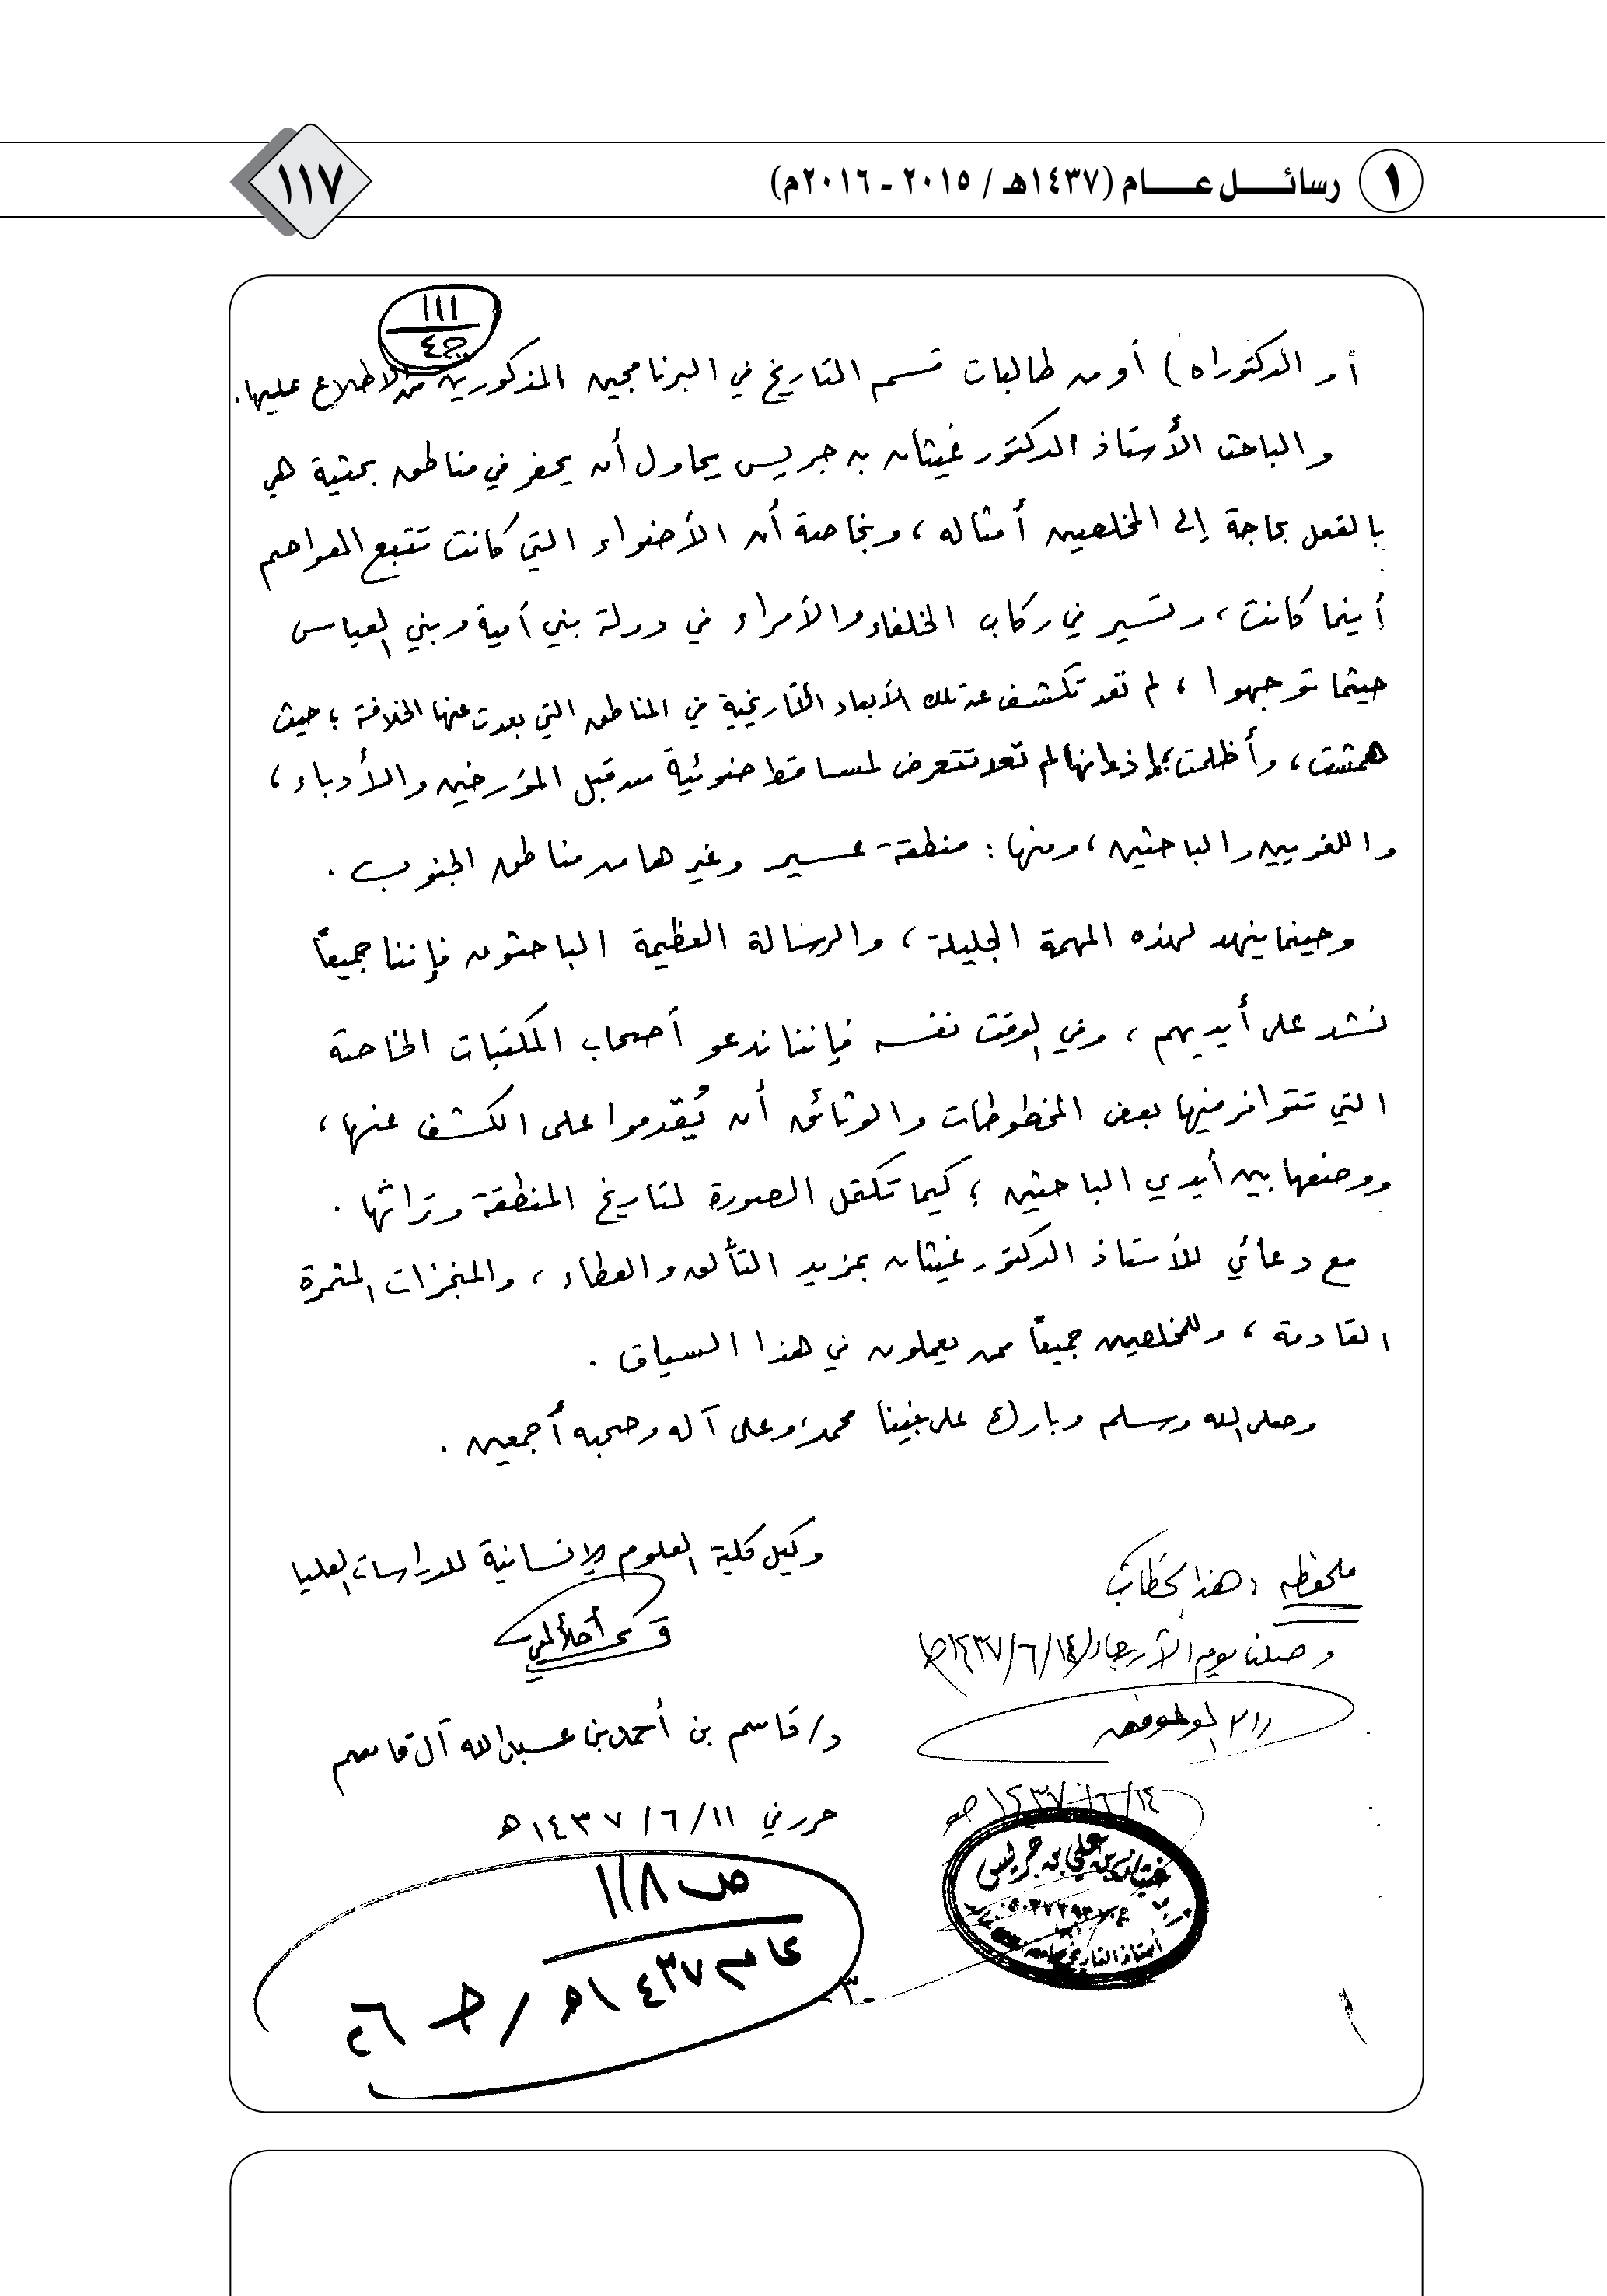 ١ رسائل عام (١٤٣٧هـ / ٢٠١٥ - ٢٠١٦م)
١١٧
١١١
أو الدكتوراه) أو من طالبات قسم التاريخ في البرنامجين المذكورين من الاطلاع عليها.
والباحث الأستاذ الدكتور غيثان بن جريس يحاول أن يحفر في مناطق بحثية هي
بالفعل بحاجة إلى المخلصين أمثاله، وبخاصة أن الأضواء التي كانت تتبع العواصم
أينما كانت، وتسير في ركاب الخلفاء والأمراء في دولة بني أمية وبني العباس
حيثما توجهوا، لم تعد تكشف عن تلك الأبعاد التاريخية في المناطق التي بعدت عنها الخلافة؛ حيث
همشت، وأظلمت؛ إذ إنها لم تعد تتعرض لمساقط ضوئية من قبل المؤرخين والأدباء،
واللغويين والباحثين، ومنها: منطقة عسير وغيرها من مناطق الجنوب.
وحينما ينهد لهذه المهمة الجليلة، والرسالة العظيمة الباحثون فإننا جميعاً
نشد على أيديهم، وفي الوقت نفسه فإننا ندعو أصحاب المكتبات الخاصة
التي تتوافر فيها بعض المخطوطات والوثائق أن يُقدموا على الكشف عنها،
ووضعها بين أيدي الباحثين؛ كيما تكتمل الصورة لتاريخ المنطقة وتراثها.
مع دعائي للأستاذ الدكتور غيثان بمزيد التألق والعطاء، والمنجزات المثمرة
القادمة، وللمخلصين جميعاً ممن يعملون في هذا السياق.
وصلى الله وسلم وبارك على نبينا محمد، وعلى آله وصحبه أجمعين.
وكيل كلية العلوم الإنسانية للدراسات العليا
د/ قاسم بن أحمد بن عبدالله آل قاسم
حرر في ١١/ ٦/ ١٤٣٧هـ
ملحوظه : هذا الخطاب
وصلنا يوم الأربعاء ١٤/٦/١٤٣٧هـ
والله الموفق
١٤/٦/١٤٣٧هـ
غيثان بن علي بن جريس
أستاذ التاريخ
ص ١١٨
عام ١٤٣٧هـ / جـ ٢٦
-٣-